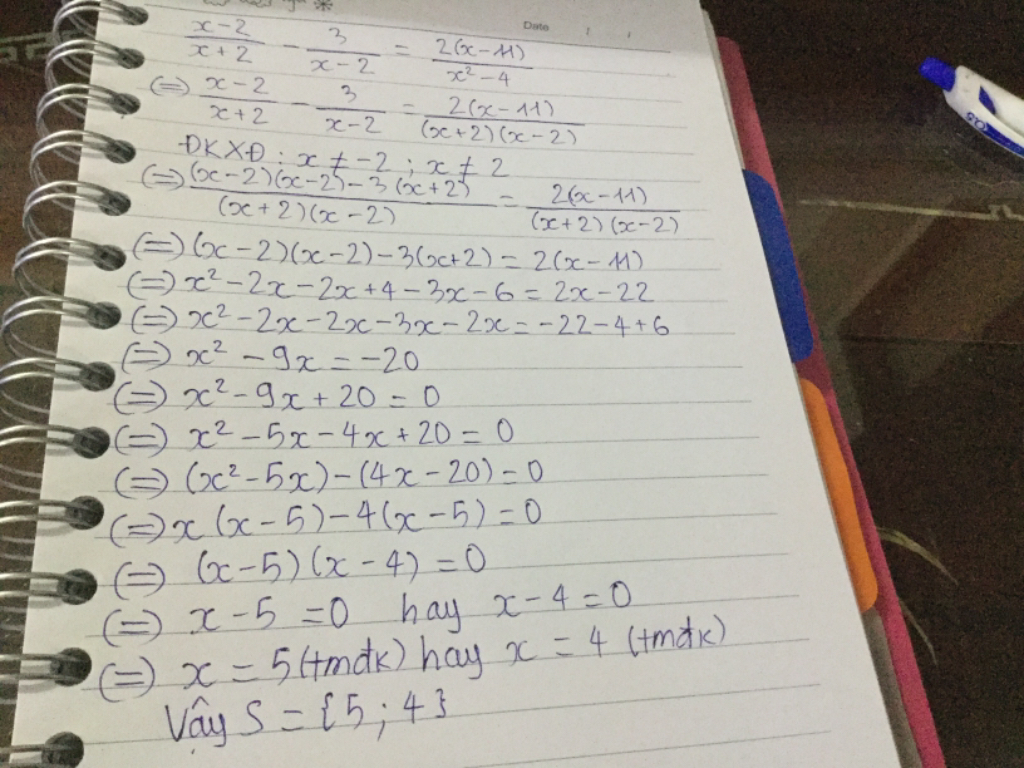 Date
x-2/x+2 - 3/x-2 = 2(x-11)/x²-4
(=) x-2/x+2 - 3/x-2 = 2(x-11)/(x+2)(x-2)
ĐKXĐ: x ≠ -2 ; x ≠ 2
(=) (x-2)(x-2)-3(x+2)/(x+2)(x-2) = 2(x-11)/(x+2)(x-2)
(=) (x-2)(x-2)-3(x+2) = 2(x-11)
(=) x²-2x-2x+4-3x-6 = 2x-22
(=) x²-2x-2x-3x-2x = -22-4+6
(=) x² -9x = -20
(=) x²-9x+20 = 0
(=) x²-5x-4x+20 = 0
(=) (x²-5x)-(4x-20) = 0
(=) x(x-5)-4(x-5) = 0
(=) (x-5)(x-4) = 0
(=) x-5 = 0 hay x-4 = 0
(=) x = 5 (tmđk) hay x = 4 (tmđk)
Vậy S = {5 ; 4}